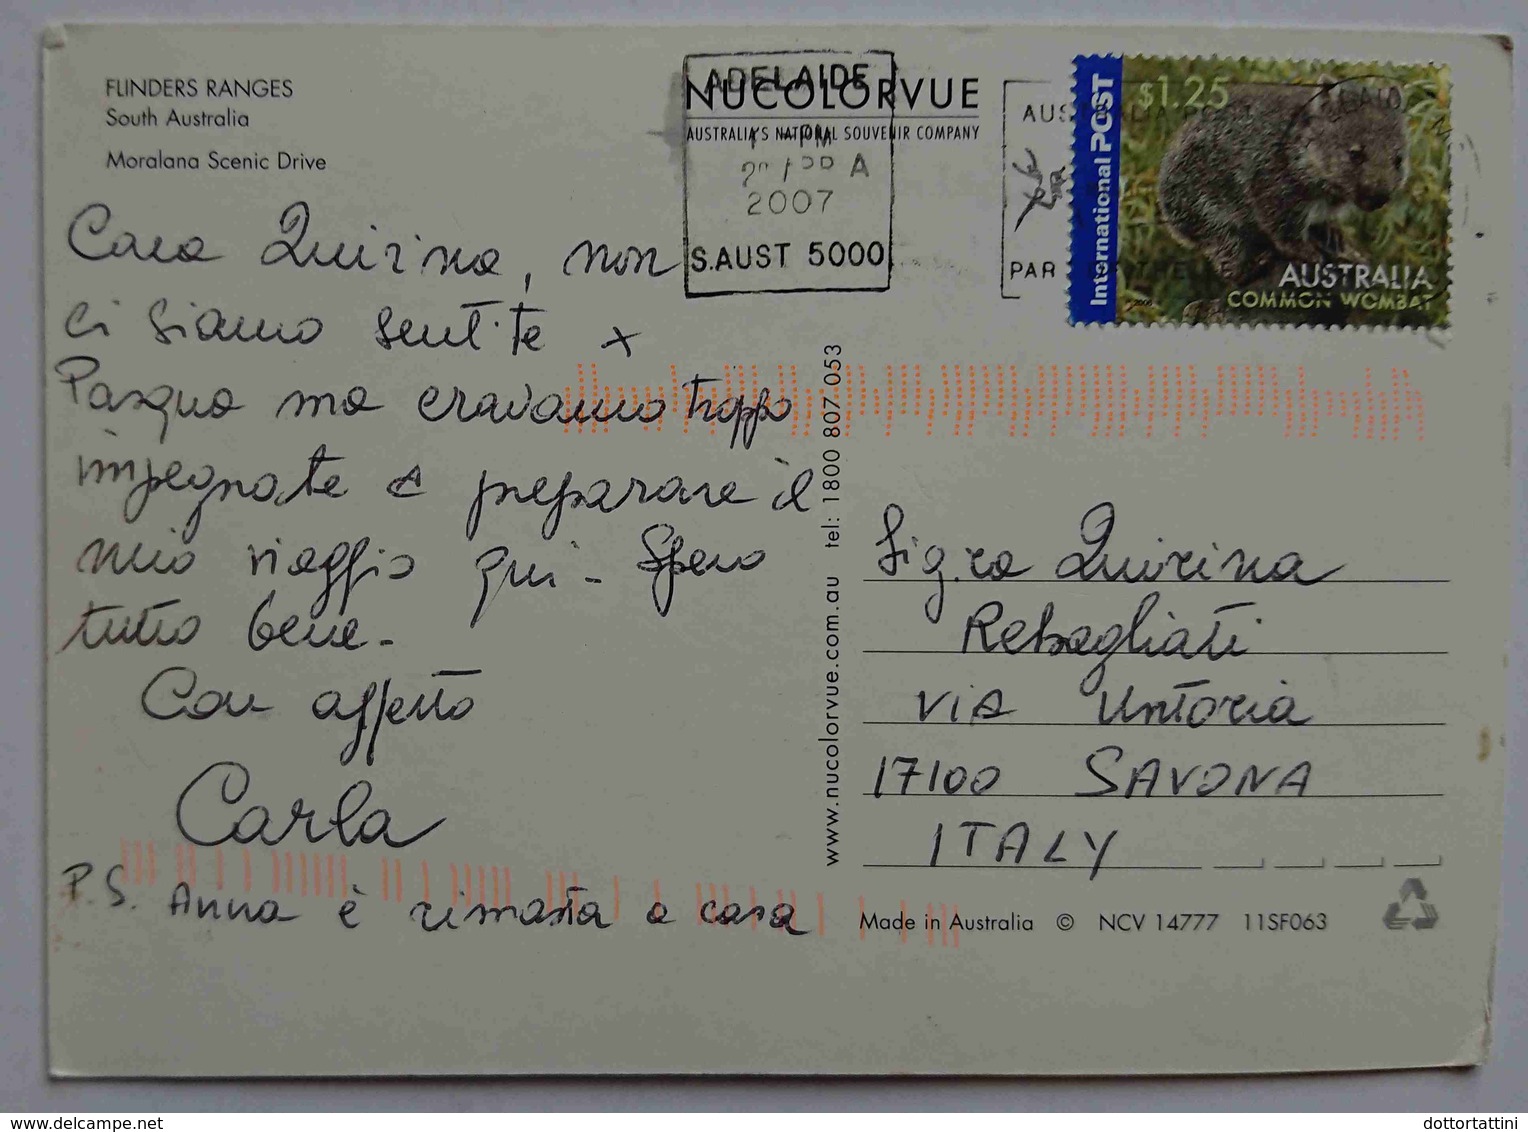 FLINDERS RANGES
South Australia
Moralana Scenic Drive
NUCOLORVUE
AUSTRALIA'S NATIONAL SOUVENIR COMPANY
ADELAIDE
PM
A
2007
S.AUST 5000
PAR
International POST
$1.25
AUSTRALIA
COMMON WOMBAT
2006
Cara Quirina, non
ci siamo sentite x
Pasqua ma eravamo troppo
impegnate a preparare il
mio viaggio qui - Spero
tutto bene -
Con affetto
Carla
P.S. Anna è rimasta a casa
www.nucolorvue.com.au tel: 1800 807 053
Sig.ra Quirina
Rebagliati
VIA Untoria
17100 SAVONA
ITALY
Made in Australia © NCV 14777 11SF063
dottortattini